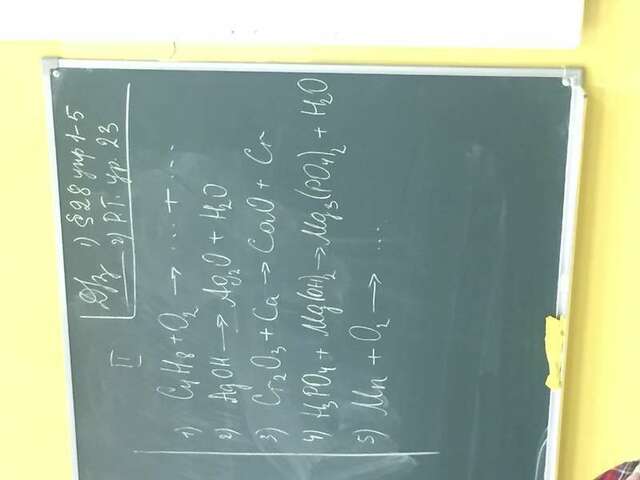 Д/з 1) § 28 упр 1-5
2) Р.Т. ур. 23
II
1) C₄H₈ + O₂ → ... + ...
2) AgOH → Ag₂O + H₂O
3) Cr₂O₃ + Ca → CaO + Cr
4) H₃PO₄ + Mg(OH)₂ → Mg₃(PO₄)₂ + H₂O
5) Mn + O₂ → ...